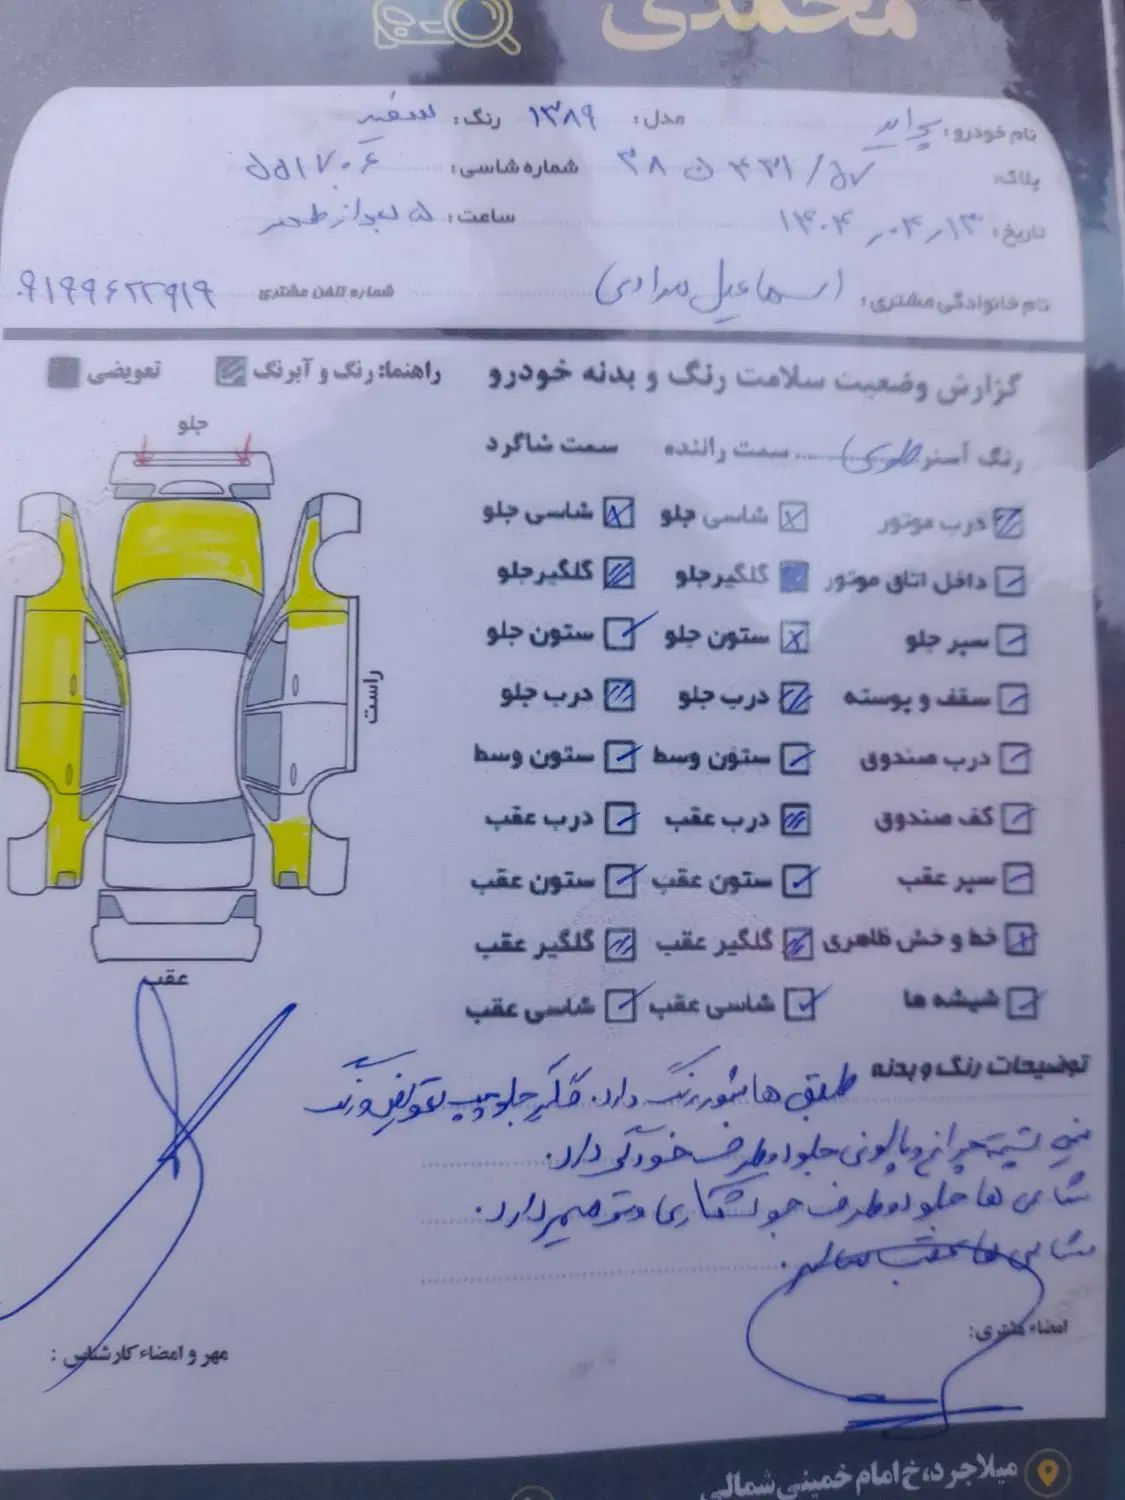 محمدی
نام خودرو: پراید مدل: ۱۳۸۹ رنگ: سفید
پلاک: ۳۸ ن ۴۳۱ / ۵۷ شماره شاسی: ۵۵۱۷۰۶
تاریخ: ۱۴۰۴٫۰۴٫۱۳ ساعت: ۵ بعداز ظهر
نام خانوادگی مشتری: اسماعیل مرادی شماره تلفن مشتری ۰۹۱۹۹۶۲۲۹۱۹
گزارش وضعیت سلامت رنگ و بدنه خودرو راهنما: رنگ و آبرنگ تعویضی
رنگ آستر طوسی سمت راننده سمت شاگرد
درب موتور شاسی جلو شاسی جلو
داخل اتاق موتور گلگیر جلو گلگیر جلو
سپر جلو ستون جلو ستون جلو
سقف و پوسته درب جلو درب جلو
درب صندوق ستون وسط ستون وسط
کف صندوق درب عقب درب عقب
سپر عقب ستون عقب ستون عقب
خط و خش ظاهری گلگیر عقب گلگیر عقب
شیشه ها شاسی عقب شاسی عقب
جلو
راست
عقب
توضیحات رنگ و بدنه طلق ها شور رنگ دارد. گلگیر جلو چپ تعویض و رنگ
سینی پشت چراغ و پالونی جلو دو طرف خوردگی دارد.
شاسی ها جلو دو طرف جوشکاری و ترمیم دارد.
شاسی ها عقب سالم.
امضاء مشتری:
مهر و امضاء کارشناس :
میلاجرد، خ امام خمینی شمالی